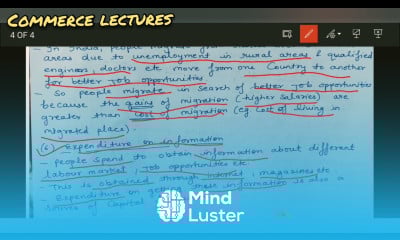 COMMERCE LECTURES
4 OF 4
- In India, people migrate
areas due to unemployment in rural areas & qualified
engineers, doctors etc move from one Country to another
for better job opportunities
- So people migrate in search of better job opportunities
because the gains of migration (higher salaries) are
greater than cost of migration (eg cost of living in
migrated places).
(6) Expenditure on information
- People spend to obtain information about different
labour market, job opportunities etc.
- This is obtained through internet, magazines etc
- Expenditure on getting these information is also a
source of Capital
Mind
Luster